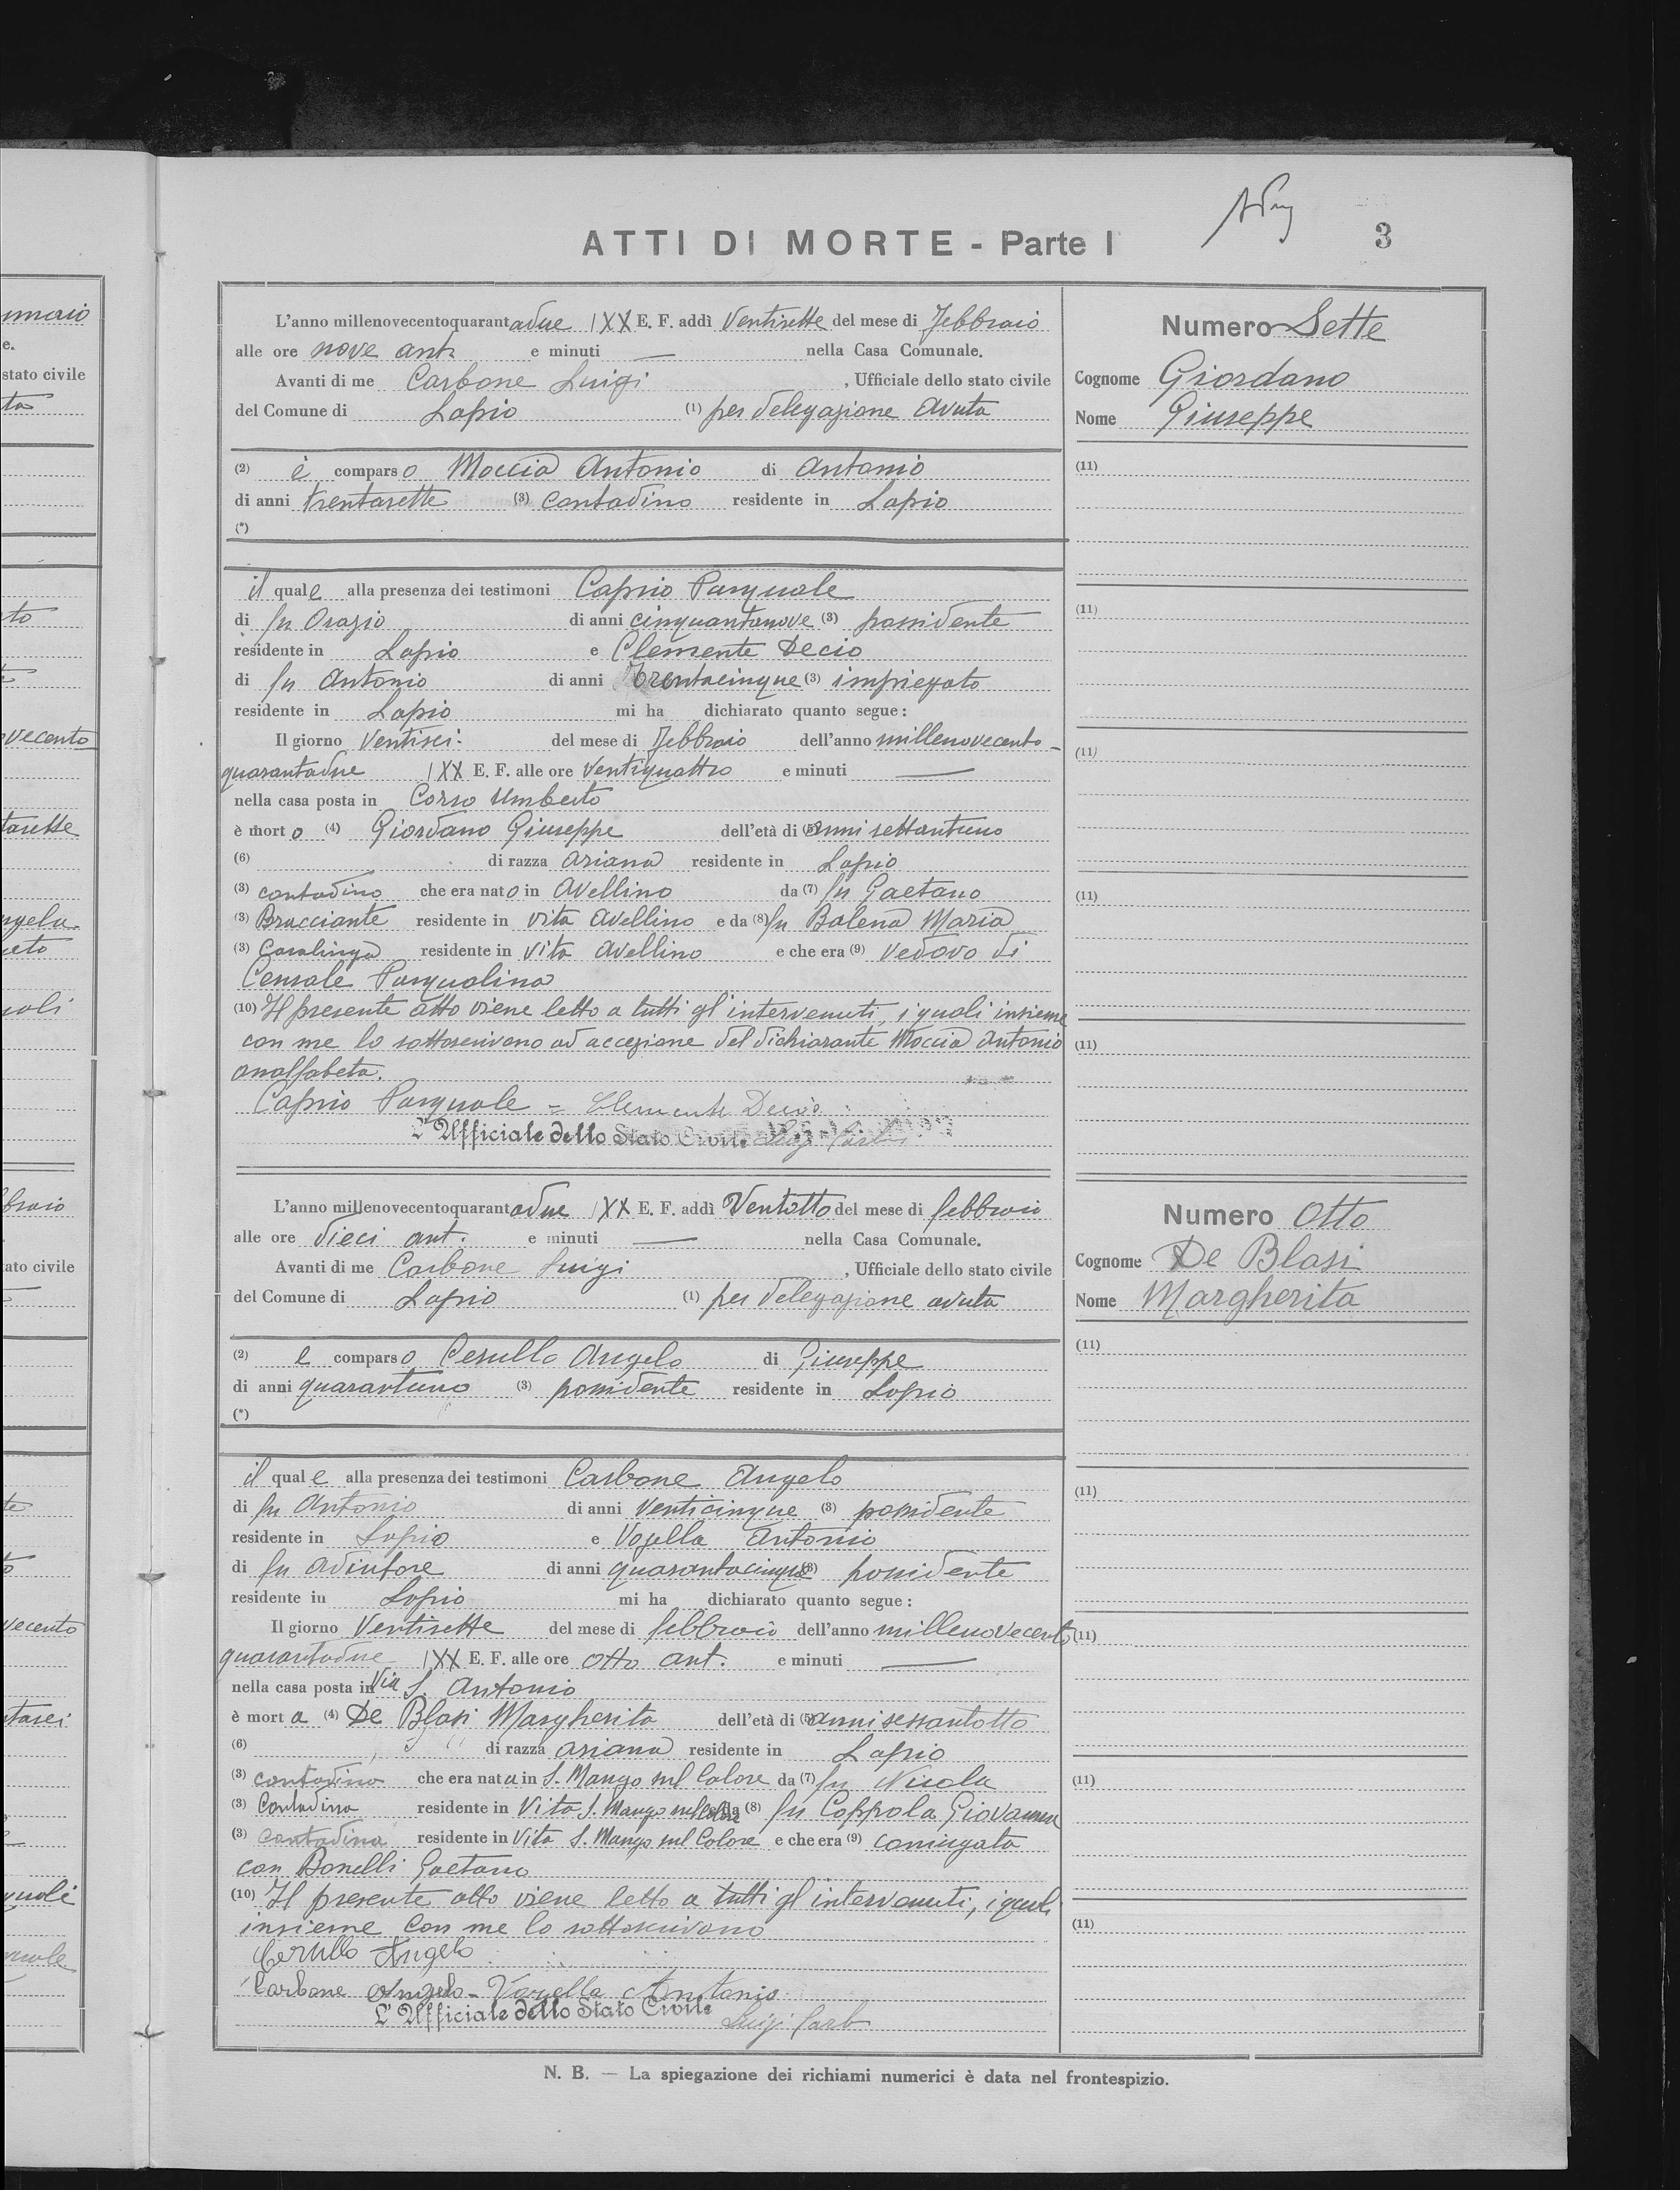 ATTI DI MORTE - Parte I
3
L'anno millenovecentoquarantadue XX E. F. addì Ventisette del mese di Febbraio
alle ore nove ant. e minuti — nella Casa Comunale.
Avanti di me Carbone Luigi, Ufficiale dello stato civile
del Comune di Lapio (1) per delegazione avuta
(2) è comparso Moccia Antonio di Antonio
di anni trentasette (3) contadino residente in Lapio
(*)
il quale alla presenza dei testimoni Caprio Pasquale
di fu Orazio di anni cinquantanove (3) possidente
residente in Lapio e Clemente Decio
di fu Antonio di anni trentacinque (3) impiegato
residente in Lapio mi ha dichiarato quanto segue:
Il giorno Ventisei del mese di Febbraio dell'anno millenovecento-
quarantadue XX E. F. alle ore ventiquattro e minuti —
nella casa posta in Corso Umberto
è morto (4) Giordano Giuseppe dell'età di (5) anni settantuno
(6) di razza ariana residente in Lapio
(3) contadino che era nato in Avellino da (7) fu Gaetano
(3) Bracciante residente in vita Avellino e da (8) fu Balena Maria
(3) Casalinga residente in vita Avellino e che era (9) vedovo di
Censale Pasqualina
(10) Il presente atto viene letto a tutti gl'intervenuti, i quali insieme
con me lo sottoscrivono ad accezione del dichiarante Moccia Antonio
analfabeta.
Caprio Pasquale = Clemente Decio
L'Ufficiale dello Stato Civile
Numero Sette
Cognome Giordano
Nome Giuseppe
(11)
(11)
(11)
(11)
(11)
L'anno millenovecentoquarantadue XX E. F. addì Ventotto del mese di febbraio
alle ore dieci ant. e minuti — nella Casa Comunale.
Avanti di me Carbone Luigi, Ufficiale dello stato civile
del Comune di Lapio (1) per delegazione avuta
(2) è comparso Cerullo Angelo di Giuseppe
di anni quarantuno (3) possidente residente in Lapio
(*)
il quale alla presenza dei testimoni Carbone Angelo
di fu Antonio di anni venticinque (3) possidente
residente in Lapio e Vogella Antonio
di fu Adiutore di anni quarantacinque (3) possidente
residente in Lapio mi ha dichiarato quanto segue:
Il giorno Ventisette del mese di febbraio dell'anno millenovecento
quarantadue XX E. F. alle ore otto ant. e minuti —
nella casa posta in Via S. Antonio
è morta (4) De Blasi Margherita dell'età di (5) anni sessantotto
(6) di razza ariana residente in Lapio
(3) contadina che era nata in S. Mango sul Calore da (7) fu Nicola
(3) Contadino residente in Vita S. Mango sul Calore e da (8) fu Coppola Giovanna
(3) Contadina residente in Vita S. Mango sul Calore e che era (9) coniugata
con Bonelli Gaetano
(10) Il presente atto viene letto a tutti gl'intervenuti, i quali
insieme con me lo sottoscrivono
Cerullo Angelo
Carbone Angelo - Vogella Antonio
L'Ufficiale dello Stato Civile
Luigi Carb
Numero Otto
Cognome De Blasi
Nome Margherita
(11)
(11)
(11)
(11)
(11)
N. B. — La spiegazione dei richiami numerici è data nel frontespizio.